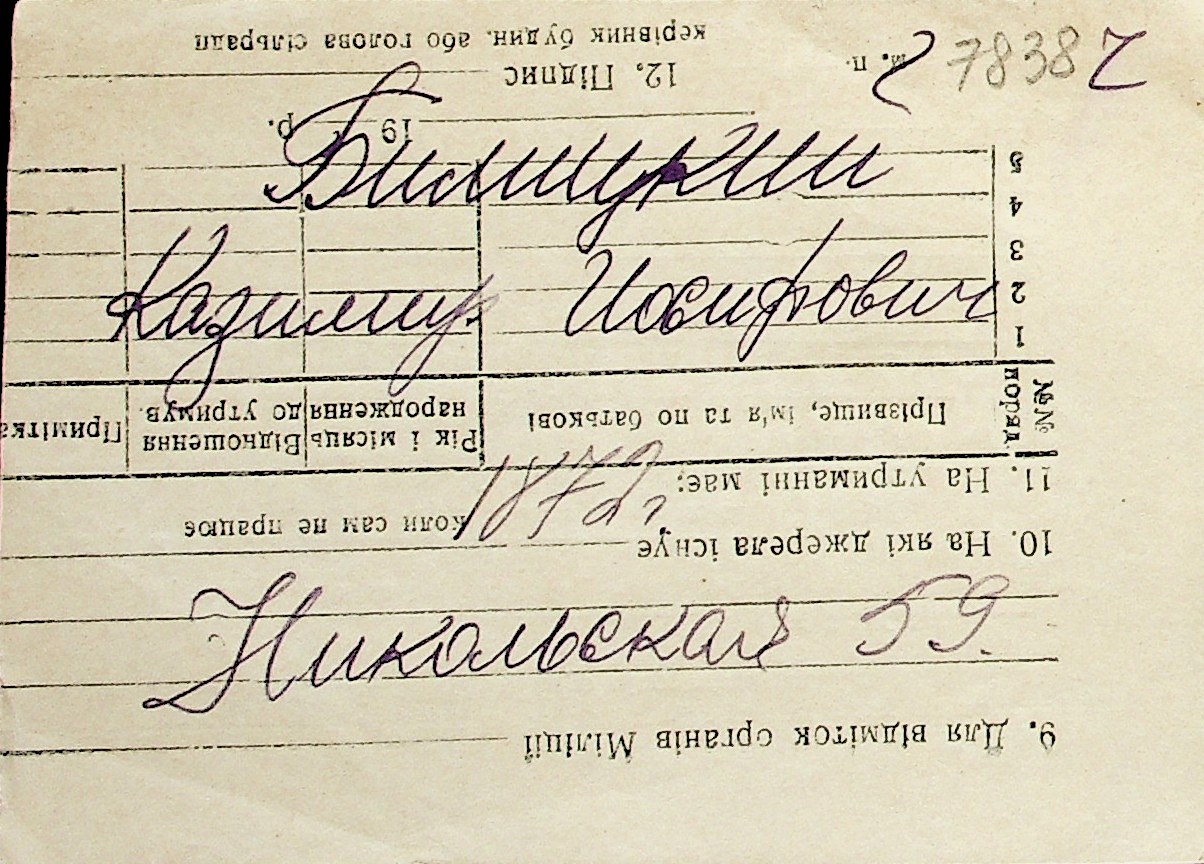 7838
Билицкий
Казимир Иосифович
1872 г.
Никольская 59.
9. Для відміток органів Міліції
10. На які джерела існує
коли сам не працює
11. На утриманні має:
№№ поряд.
Прізвище, ім'я та по батькові
Рік і місяць народження
Відношення до утримув.
Примітка
1
2
3
4
5
19 р.
12. Підпис
м. п.
керівник будин. або голова сільради